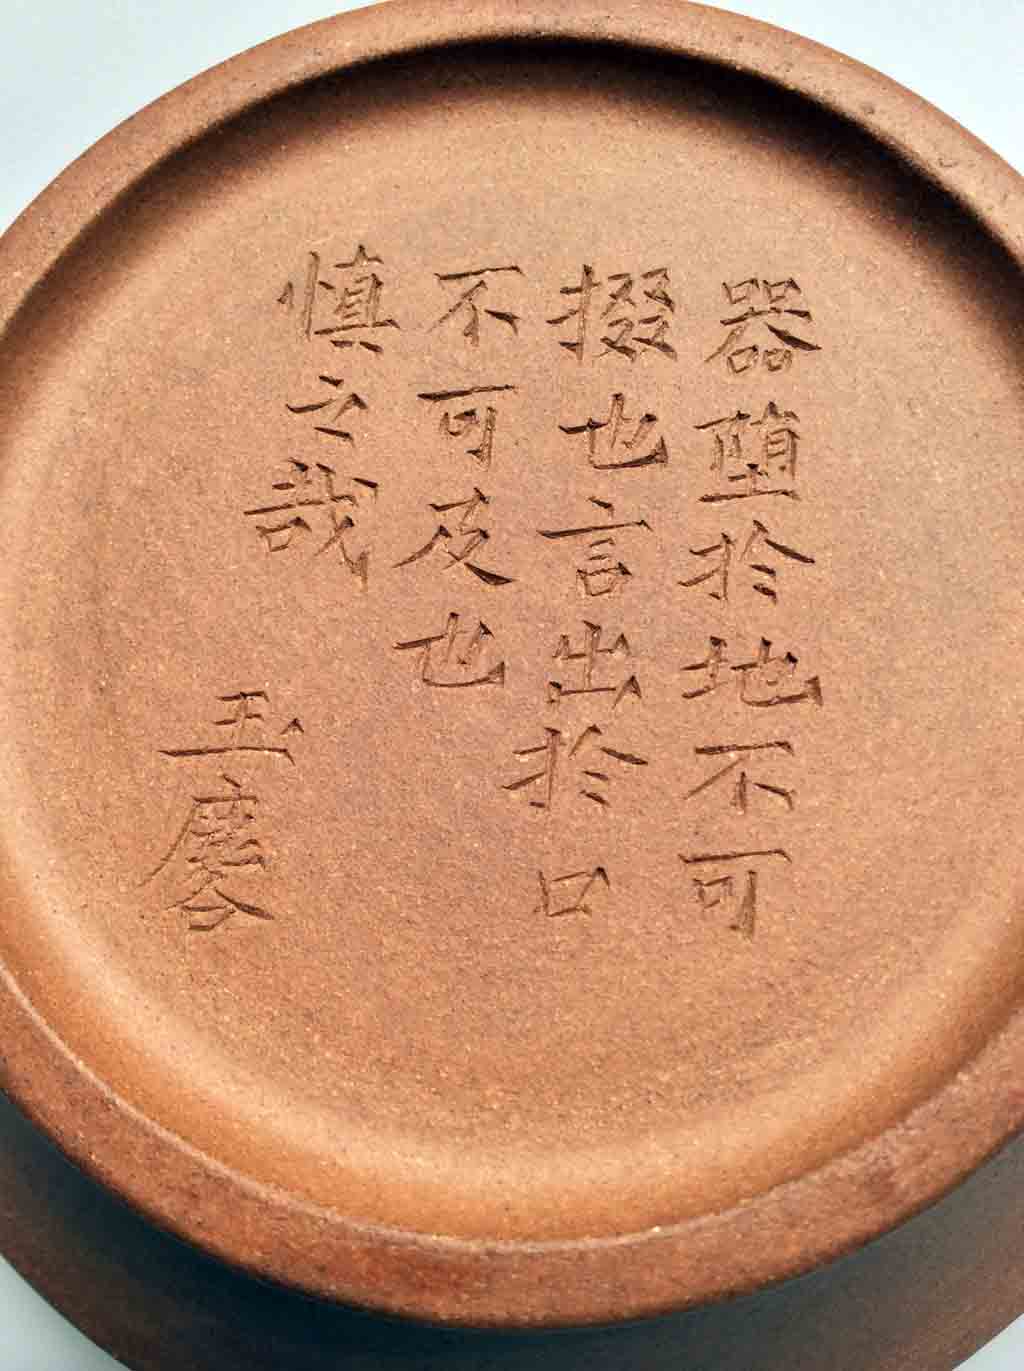 器堕於地不可
掇也言出於口
不可及也
慎之哉
玉麐